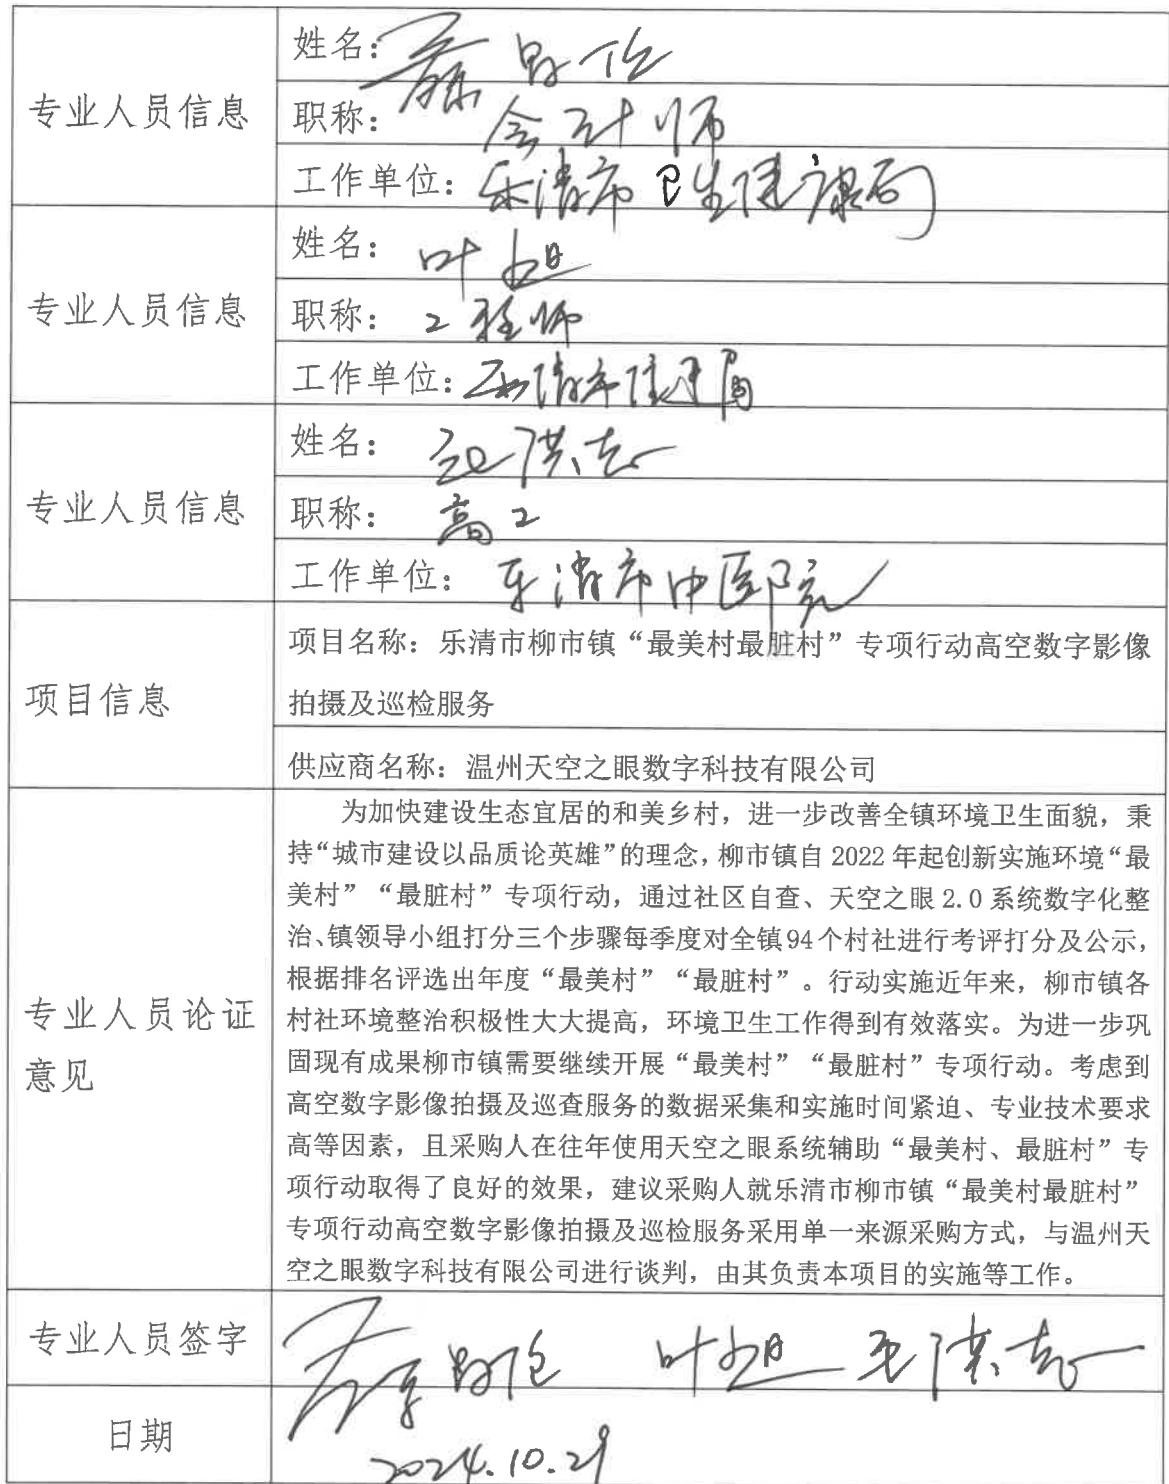 姓名：
专业人员信息
职称：会计师
工作单位：乐清市卫生健康局
姓名：叶旭
专业人员信息
职称：工程师
工作单位：乐清市住建局
姓名：洪志
专业人员信息
职称：高工
工作单位：乐清市中医院
项目信息
项目名称：乐清市柳市镇“最美村最脏村”专项行动高空数字影像
拍摄及巡检服务
供应商名称：温州天空之眼数字科技有限公司
专业人员论证
意见
为加快建设生态宜居的和美乡村，进一步改善全镇环境卫生面貌，秉
持“城市建设以品质论英雄”的理念，柳市镇自 2022 年起创新实施环境“最
美村”“最脏村”专项行动，通过社区自查、天空之眼 2.0 系统数字化整
治、镇领导小组打分三个步骤每季度对全镇94个村社进行考评打分及公示，
根据排名评选出年度“最美村”“最脏村”。行动实施近年来，柳市镇各
村社环境整治积极性大大提高，环境卫生工作得到有效落实。为进一步巩
固现有成果柳市镇需要继续开展“最美村”“最脏村”专项行动。考虑到
高空数字影像拍摄及巡查服务的数据采集和实施时间紧迫、专业技术要求
高等因素，且采购人在往年使用天空之眼系统辅助“最美村、最脏村”专
项行动取得了良好的效果，建议采购人就乐清市柳市镇“最美村最脏村”
专项行动高空数字影像拍摄及巡检服务采用单一来源采购方式，与温州天
空之眼数字科技有限公司进行谈判，由其负责本项目的实施等工作。
专业人员签字
叶旭 洪志
日期
2024.10.29